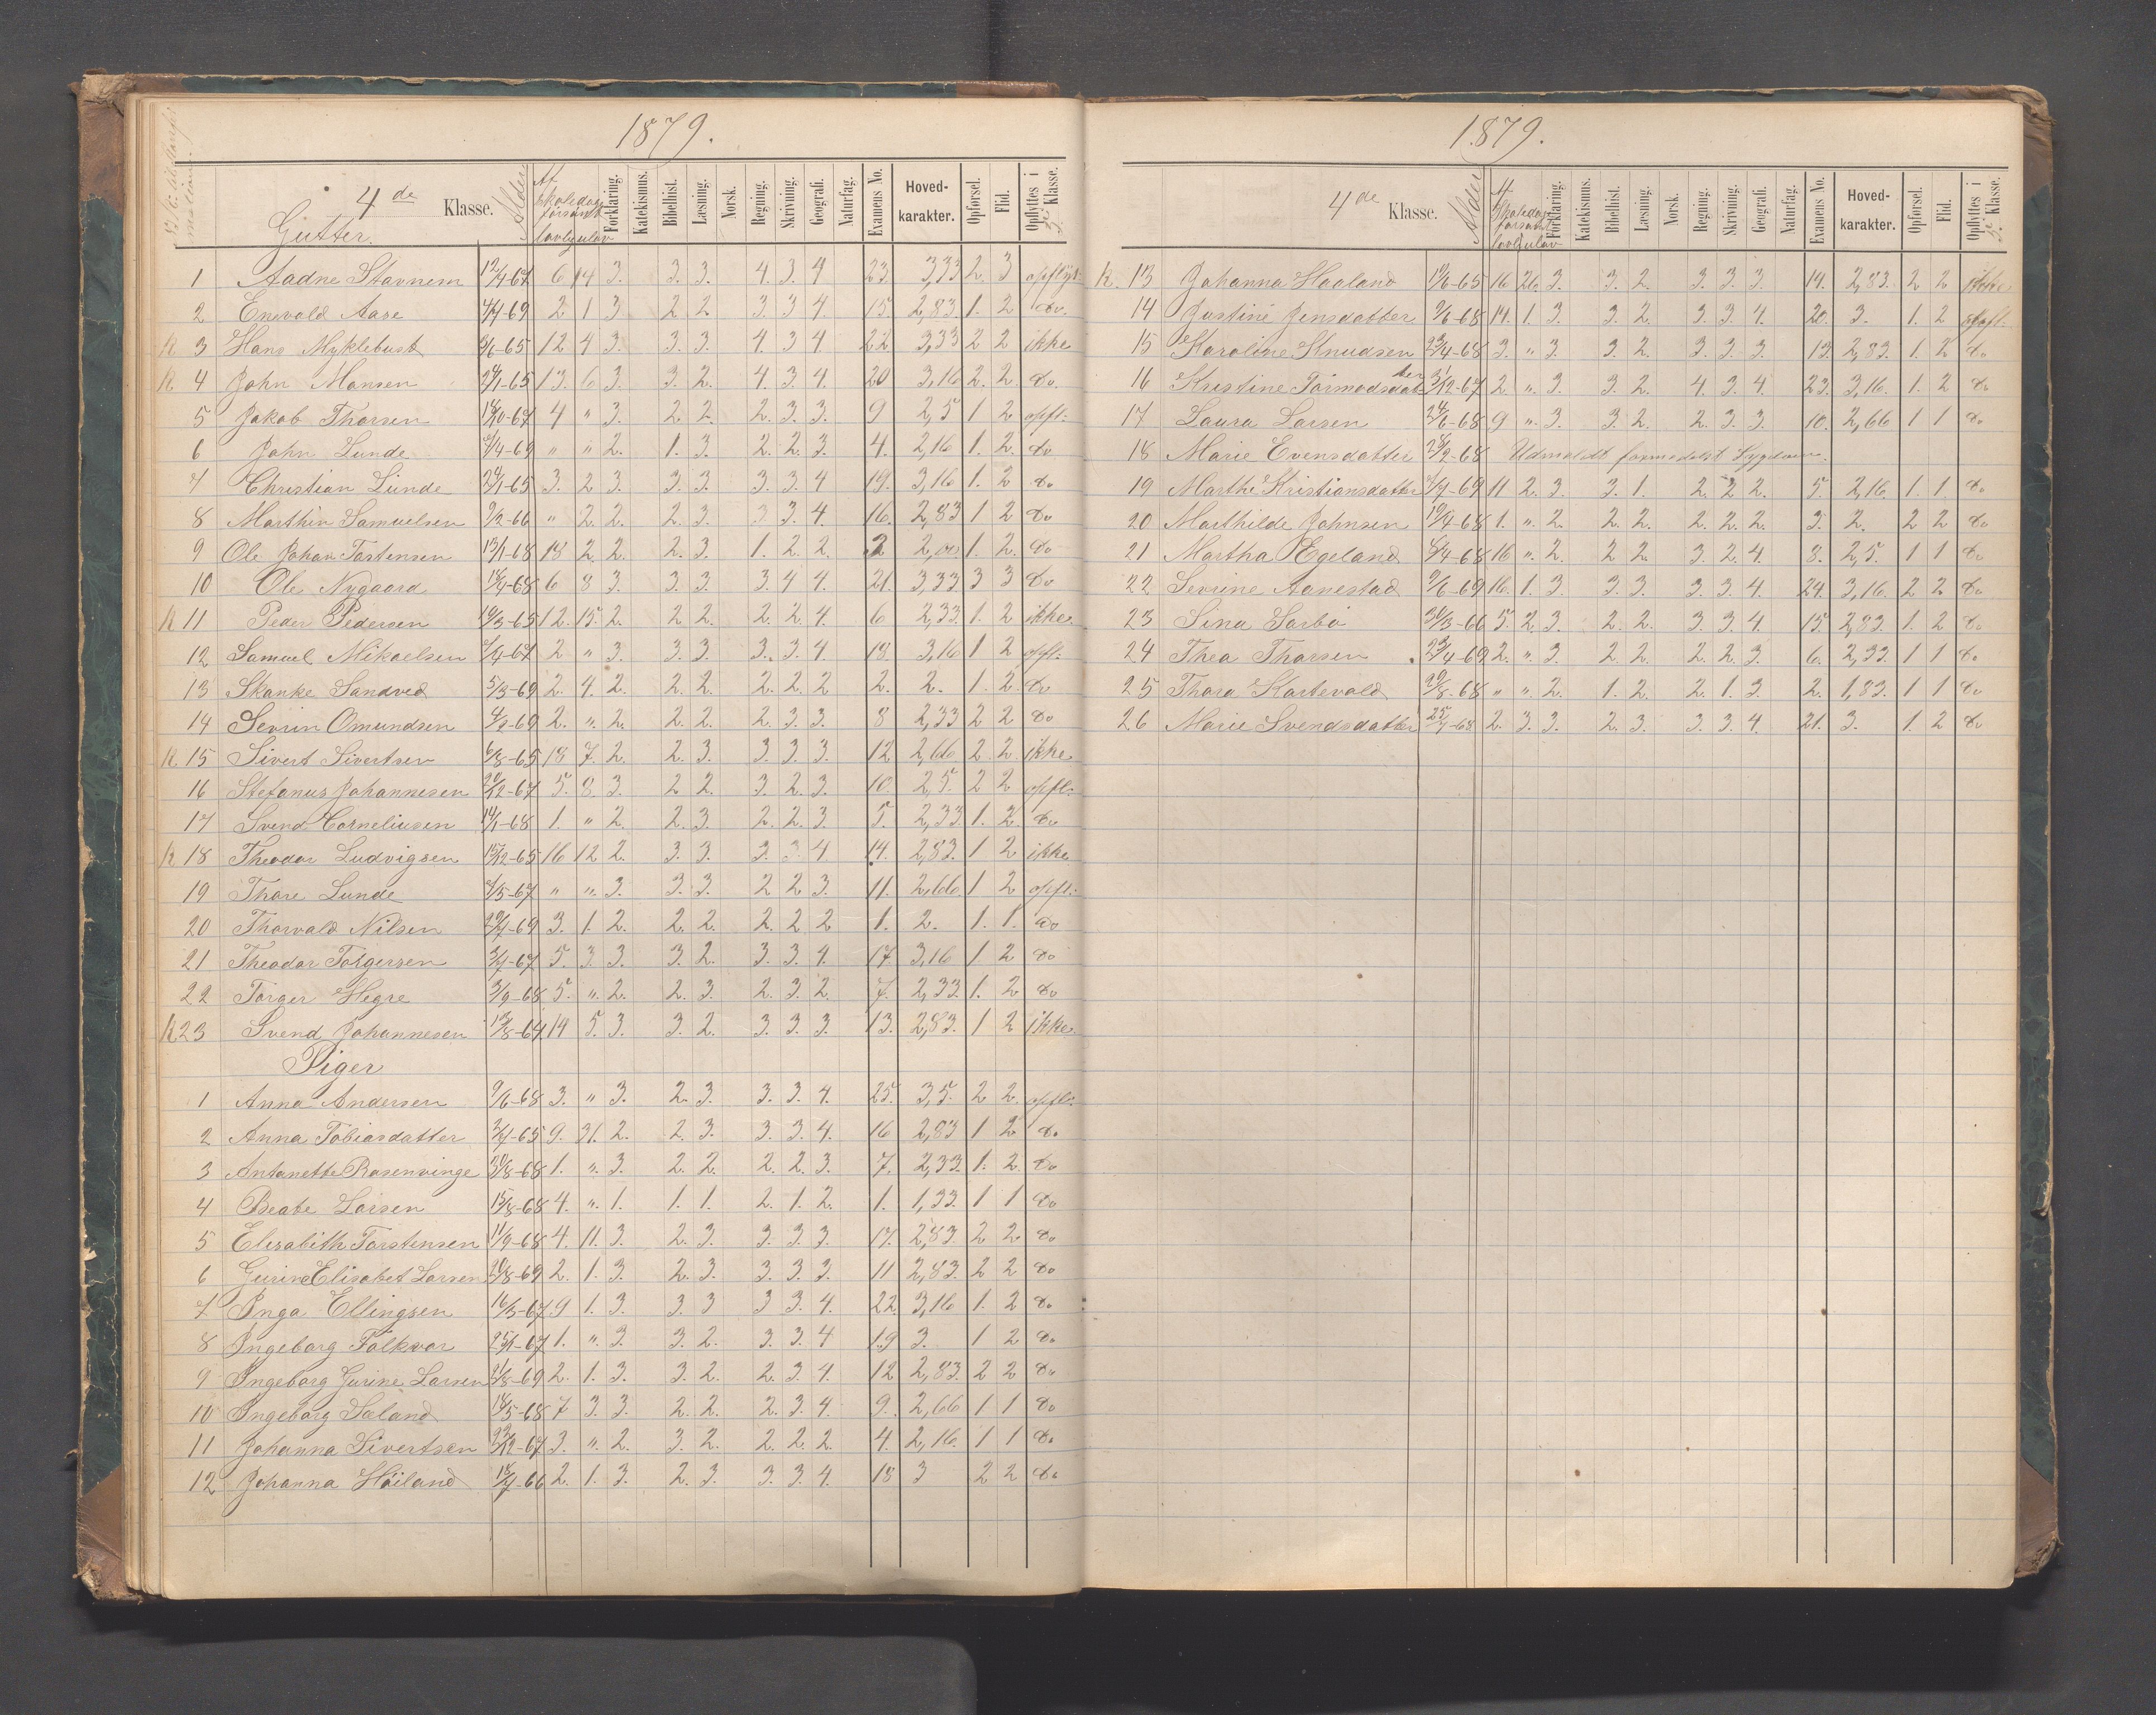 1879.
4de Klasse.
Gutter.
Alder
Af Skoledage forsømt
lovl. ulov
Forklaring. Katekismus. Bibelhist. Læsning. Norsk. Regning. Skrivning. Geografi. Naturfag. Examens No. Hoved-karakter. Opførsel. Flid. Opflyttes i 3die Klasse.
1 Aadne Stavnem 6 14 3. 3. 3. 4. 3. 4 23. 3,33 2. 3 opflyt.
2 Enevald Aase 4/4-69 2 1 3 2 2 3 3 4. 15. 2,83. 1. 2 do.
K 3 Hans Myklebust 12 4 3. 3. 3. 4. 3 4. 22 3,33 2 2 ikke
K 4 John Monsen 13. 6 3. 3. 2. 4. 3. 4. 20 3,16 2. 2. do.
5 Jakob Thorsen 4 " 3. 2. 2. 2. 3. 3. 9 2,5 1 2 opfl.
6 John Lunde " " 2. 1. 3. 2. 2. 3. 4. 2,16 1. 2. do
7 Christian Lunde 3. 2 3. 3. 3. 3. 3. 4 19. 3,16 1. 2 do
8 Marthin Samuelsen 9/2-66 " 2. 2. 2. 3. 3 3. 4. 16. 2,83 1 2 do
9 Ole Johan Torstensen 13/1-68 18 2. 2. 2. 3. 1. 2. 2. 2 2,00 1. 2. do
10 Ole Nygaard 6 8 3. 3. 3. 3. 4 4. 21. 3,33 3 3 do
K 11 Peder Pedersen 12. 15. 2. 2 2. 2. 2. 4. 6 2,33. 1. 2 ikke
12 Samuel Mikaelsen 2 " 3. 3. 3. 3. 3. 4. 18. 3,16 1 2 opfl.
13 Skanke Sandved 5/3-69 2. 4. 2. 2. 2. 2. 2. 2 2. 2. 1. 2. do
14 Sevrin Omundsen 2. " 2. 2. 2. 2. 3. 3. 8 2,33 2 2 do
K 15 Sivert Sivertsen 6/8-65 18 7. 2. 2. 3. 3. 3. 3. 12 2,66 2. 2. ikke
16 Stefanus Johannesen 20/12-67 5. 8. 3. 2 2. 3. 2. 3. 10. 2,5. 2 2 opfl.
17 Svend Corneliusen 14/1-68 1. " 2. 2. 3. 2. 2. 3. 5. 2,33. 1. 2. do
K 18 Theodor Ludvigsen 15/12-65 16 12 2. 3. 3. 3. 3. 4 14. 2,83. 1 2 ikke
19 Thore Lunde " " 3. 3. 3. 2 2 3. 11. 2,66 1 2 opfl.
20 Thorvald Nilsen 3. 1. 2. 2. 2. 2. 2. 2 1. 2. 1. 1. do
21 Theodor Torgersen 5. 3. 3. 3. 2. 3. 3. 4. 17. 3,16 1 2 do
22 Torger Hegre 3/9-68 5. " 2. 2. 3. 2. 3. 2. 7. 2,33. 1. 2 do
K 23 Svend Johannesen 13/8-64 14 5. 3. 3. 2. 3. 3. 3. 13. 2,83. 1 2 ikke
Piger
1 Anna Andersen 9/6-68 3. " 3. 2. 3. 3. 3. 4. 25. 3,5. 2 2. opfl.
2 Anna Tobiasdatter 9. 31. 2. 2. 3. 3. 3. 4. 16 2,83 1 2 do
3 Antonette Rosenvinge 1. " 3. 2. 2. 2. 2. 3. 7. 2,33. 1. 2. do
4 Beate Larsen 15/8-68 4. " 1. 1. 1. 2. 1. 2. 1. 1,33. 1 1 do
5 Elisabith Torstensen 11/9-68 4. 11. 3. 2. 3. 3. 3. 3. 17. 2,83. 2 2 do
6 Gurina Elisabet Larsen 2. 1. 3. 2. 3. 3. 3. 3. 11 2,83. 2 2 do
7 Inga Ellingsen 16/3-67 9 1. 3. 3. 3 3 3. 4. 22. 3,16 1. 2 do
8 Ingeborg Folkvor 1. " 3. 3. 2. 3. 3. 4 19 3. 1 2 do
9 Ingeborg Gurine Larsen 2. 1. 3. 3. 2. 2. 3. 4. 12 2,83. 2 2 do
10 Ingeborg Soland 7 3. 3. 2. 2. 2. 3. 4. 9. 2,66 1 1 do
11 Johanna Sivertsen 3. " 2. 3. 2. 2. 2. 2. 4. 2,16. 1 1 do
12 Johanna Höiland 2. 1. 3. 2. 3. 3. 3. 4. 18 3 2 2 do
1879.
4de Klasse.
Alder
Af Skoledage forsømt
lovl. ulov
Forklaring. Katekismus. Bibelhist. Læsning. Norsk. Regning. Skrivning. Geografi. Naturfag. Examens No. Hoved-karakter. Opførsel. Flid. Opflyttes i 3die Klasse.
K. 13 Johanna Haaland 16 26. 3. 3. 2. 3. 3. 3. 14. 2,83. 2 2 ikke
14 Justine Jensdatter 9/6-68 14. 1. 3. 3. 2. 3. 3. 4. 20. 3. 1. 2 opfl.
15 Karoline Knudsen 23/4-68 3. " 3. 3. 2. 3. 3. 3. 13. 2,83. 1. 2 do
16 Kristine Tormodsdatter 2. " 3. 3. 2. 4. 3. 4 23. 3,16. 1. 2 do
17 Laura Larsen 24/6-68 9 " 3. 3. 2. 2. 3. 3. 10. 2,66 1 1 do
18 Marie Evensdatter Udmeldt formedelst Sygdom.
19 Marthe Kristiansdatter 11 2. 3. 3. 1. 2. 2 2. 5. 2,16. 1. 1. do
20 Mathilde Johnsen 1. " 2. 2. 2. 2. 2. 2. 3. 2. 2 2 do
21 Martha Egeland 16 " 2. 2 2. 3. 2. 4. 8. 2,5. 1 1 do
22 Sevrine Aanestad 9/6-69 16. 1. 3. 3. 3. 3. 3. 4. 24. 3,16. 2 2 do
23 Sina Sørbø 5. 2. 3. 2. 2. 3. 3. 4. 15. 2,83. 1. 2 do
24 Thea Thorsen 23/4-69 2. " 3. 2 2. 2. 2. 3. 6. 2,33. 1 1 do
25 Thora Kartevold " " 2. 1. 2. 2. 1. 3. 2. 1,83. 1 1 do
26 Marie Svendsdatter 2. 3. 3. 2. 3. 3. 3. 4. 21. 3. 1. 2 do